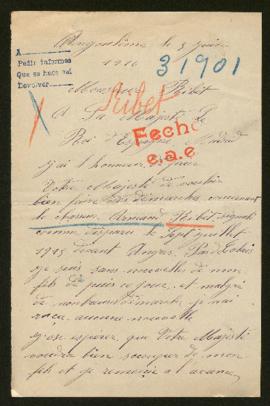 Angoulême le 3 juin
1916
31901
A
Pedir informes
Que se haga saí
Devolver
Monsieur Ribet
Ribet
A Sa Majesté le
Roi d'Espagne Madrid
Fecho
e.a.e.
j'ai l'honneur
Votre Majesté de vouloir
bien faire des démarches concernant
le chasseur Armand Ribet signalé
comme disparu le sept juillet
1915 devant Angres Pas de Calais
je suis sans nouvelle de mon
fils depuis ce jour et malgré
de nombreuses démarches je n'ai
reçu aucune nouvelle
j'ose espérer que Votre Majesté
voudra bien s'occuper de mon
fils et je remercie à l'avance